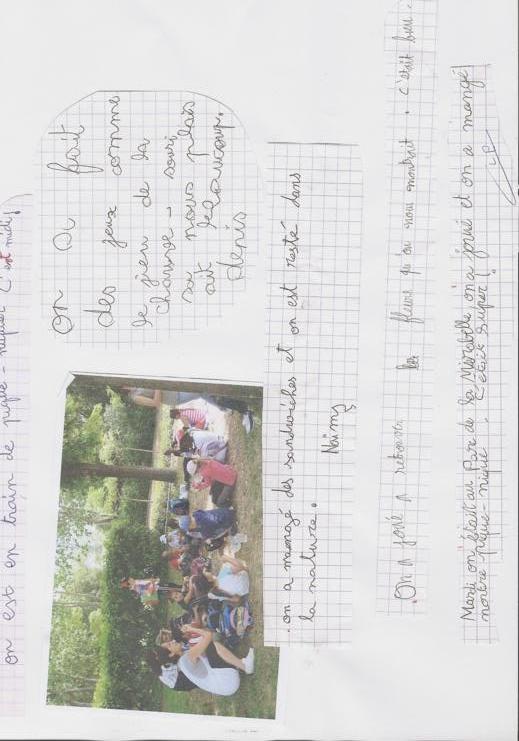 on est en train de pique-niquer c'est midi!
on a fait
des jeux comme
le jeu de la
chauve-souri
sa nous plais
ait beaucoup.
denis
on a mamgé des sandwiches et on est resté dans
la nature.
Naimy
On a joué a retrouver les fleurs qu'on nous montrait. c'était bien.
Mardi on était au Parc de la Mirabelle on a joué et on a mangé
nortre pique-niqué. C'était super!